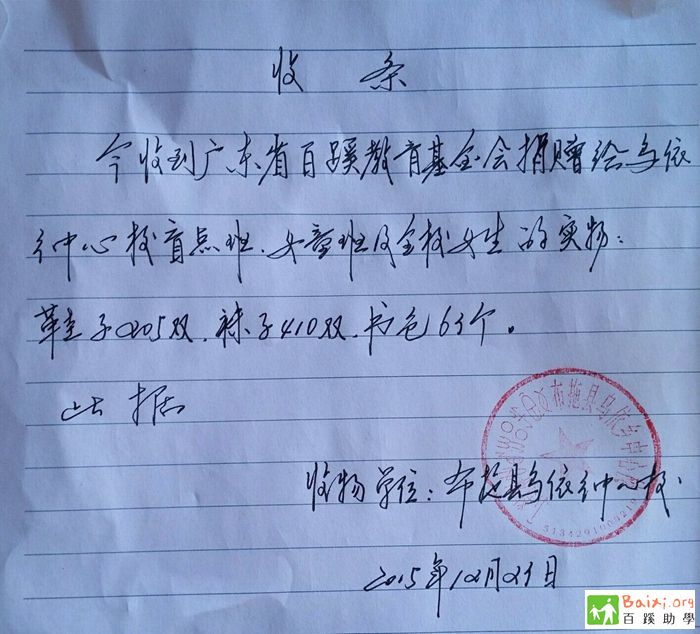 收 条
今收到广东省百蹊教育基金会捐赠给乌依
乡中心校盲点班、女童班及全校女生的实物：
鞋子205双、袜子410双、书包63个。
此据
收物单位：布拖县乌依乡中心校
2015年12月21日
布拖县乌依乡
Baixi.org
百蹊助學